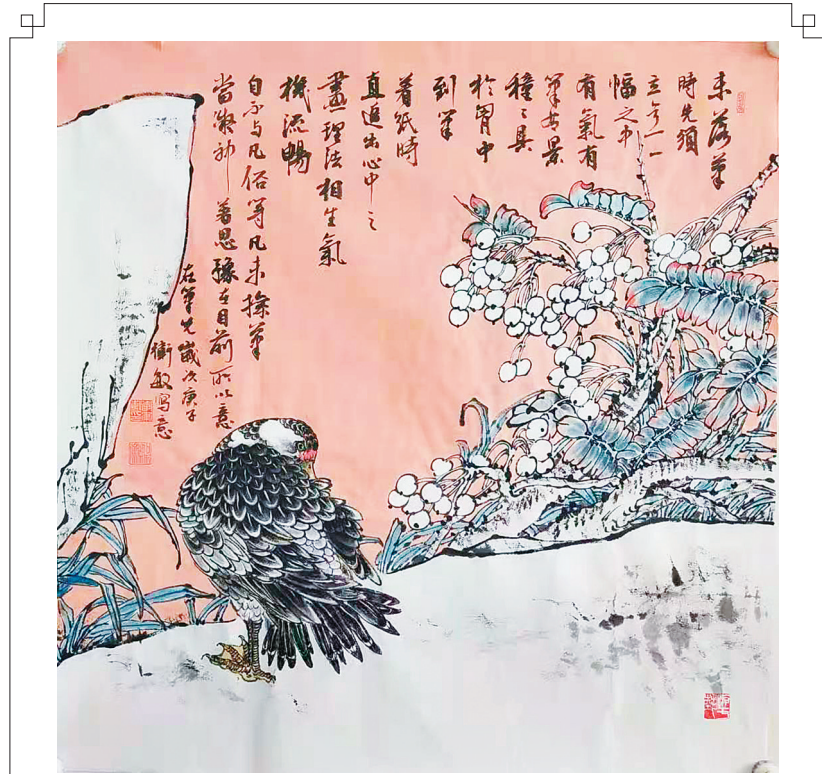 未落筆
時先須
立意一
幅之中
有氣有
筆有景
種〻具
於胷中
到筆
着紙時
直追出心中之
畫理法相生氣
機流暢
自不与凡俗等凡未操筆
當凝神著思豫在目前所以意
在筆先歲次庚子
衛敏写意